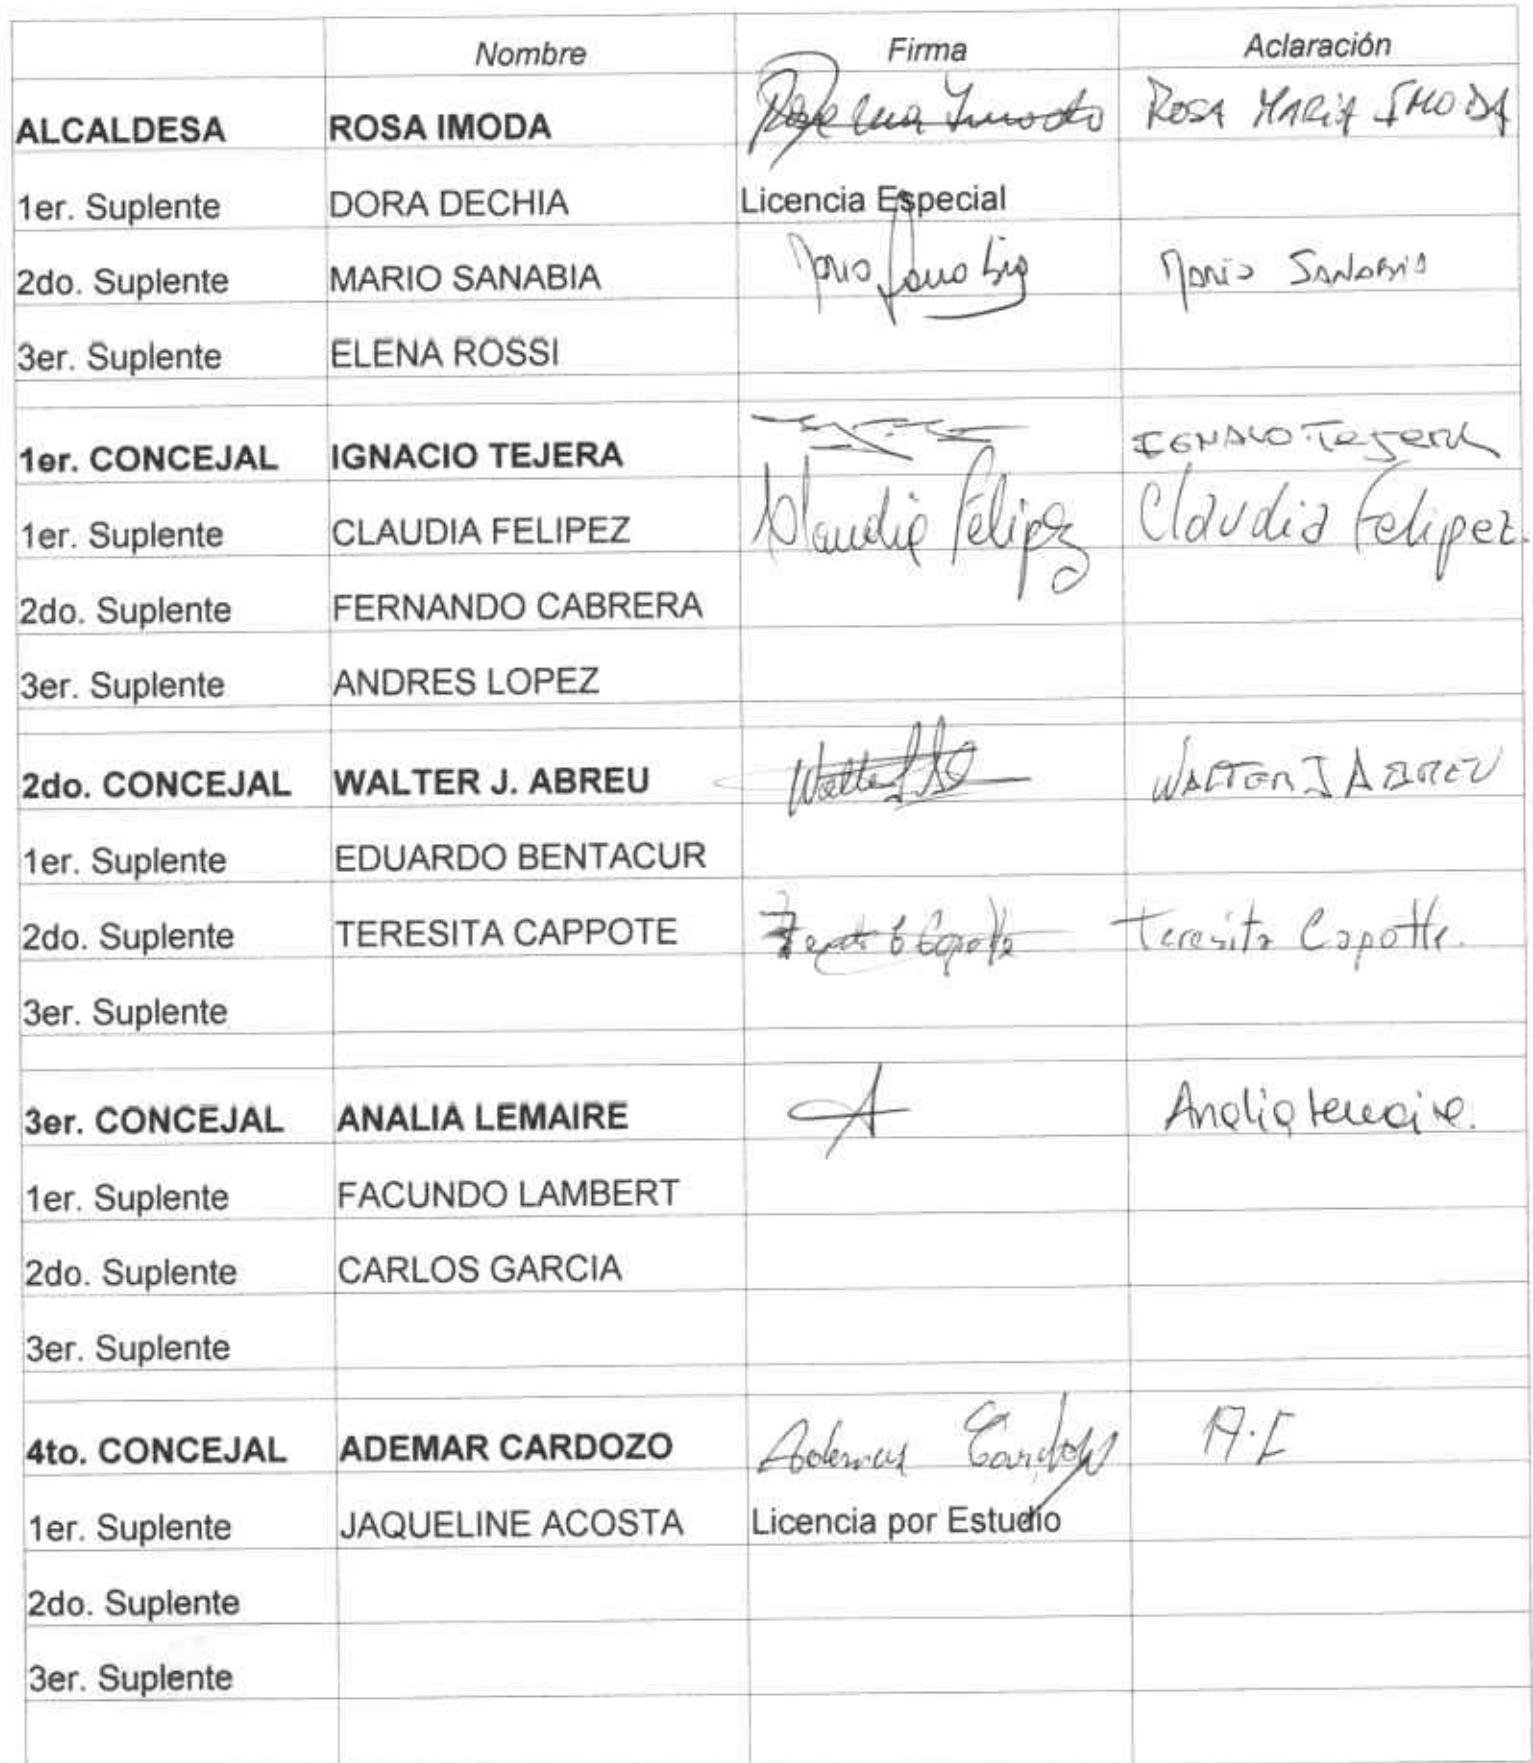 Nombre Firma Aclaración
ALCALDESA ROSA IMODA Rosa Imoda ROSA MARIA IMODA
1er. Suplente DORA DECHIA Licencia Especial
2do. Suplente MARIO SANABIA Mario Sanabia Mario SANABIA
3er. Suplente ELENA ROSSI
1er. CONCEJAL IGNACIO TEJERA IGNACIO Tejera
1er. Suplente CLAUDIA FELIPEZ Claudia Felipez Claudia Felipez.
2do. Suplente FERNANDO CABRERA
3er. Suplente ANDRES LOPEZ
2do. CONCEJAL WALTER J. ABREU Walter WALTER J ABREU
1er. Suplente EDUARDO BENTACUR
2do. Suplente TERESITA CAPPOTE Capotte Teresita Capotte.
3er. Suplente
3er. CONCEJAL ANALIA LEMAIRE A Analia Lemaire.
1er. Suplente FACUNDO LAMBERT
2do. Suplente CARLOS GARCIA
3er. Suplente
4to. CONCEJAL ADEMAR CARDOZO Ademar Cardozo A.C
1er. Suplente JAQUELINE ACOSTA Licencia por Estudio
2do. Suplente
3er. Suplente